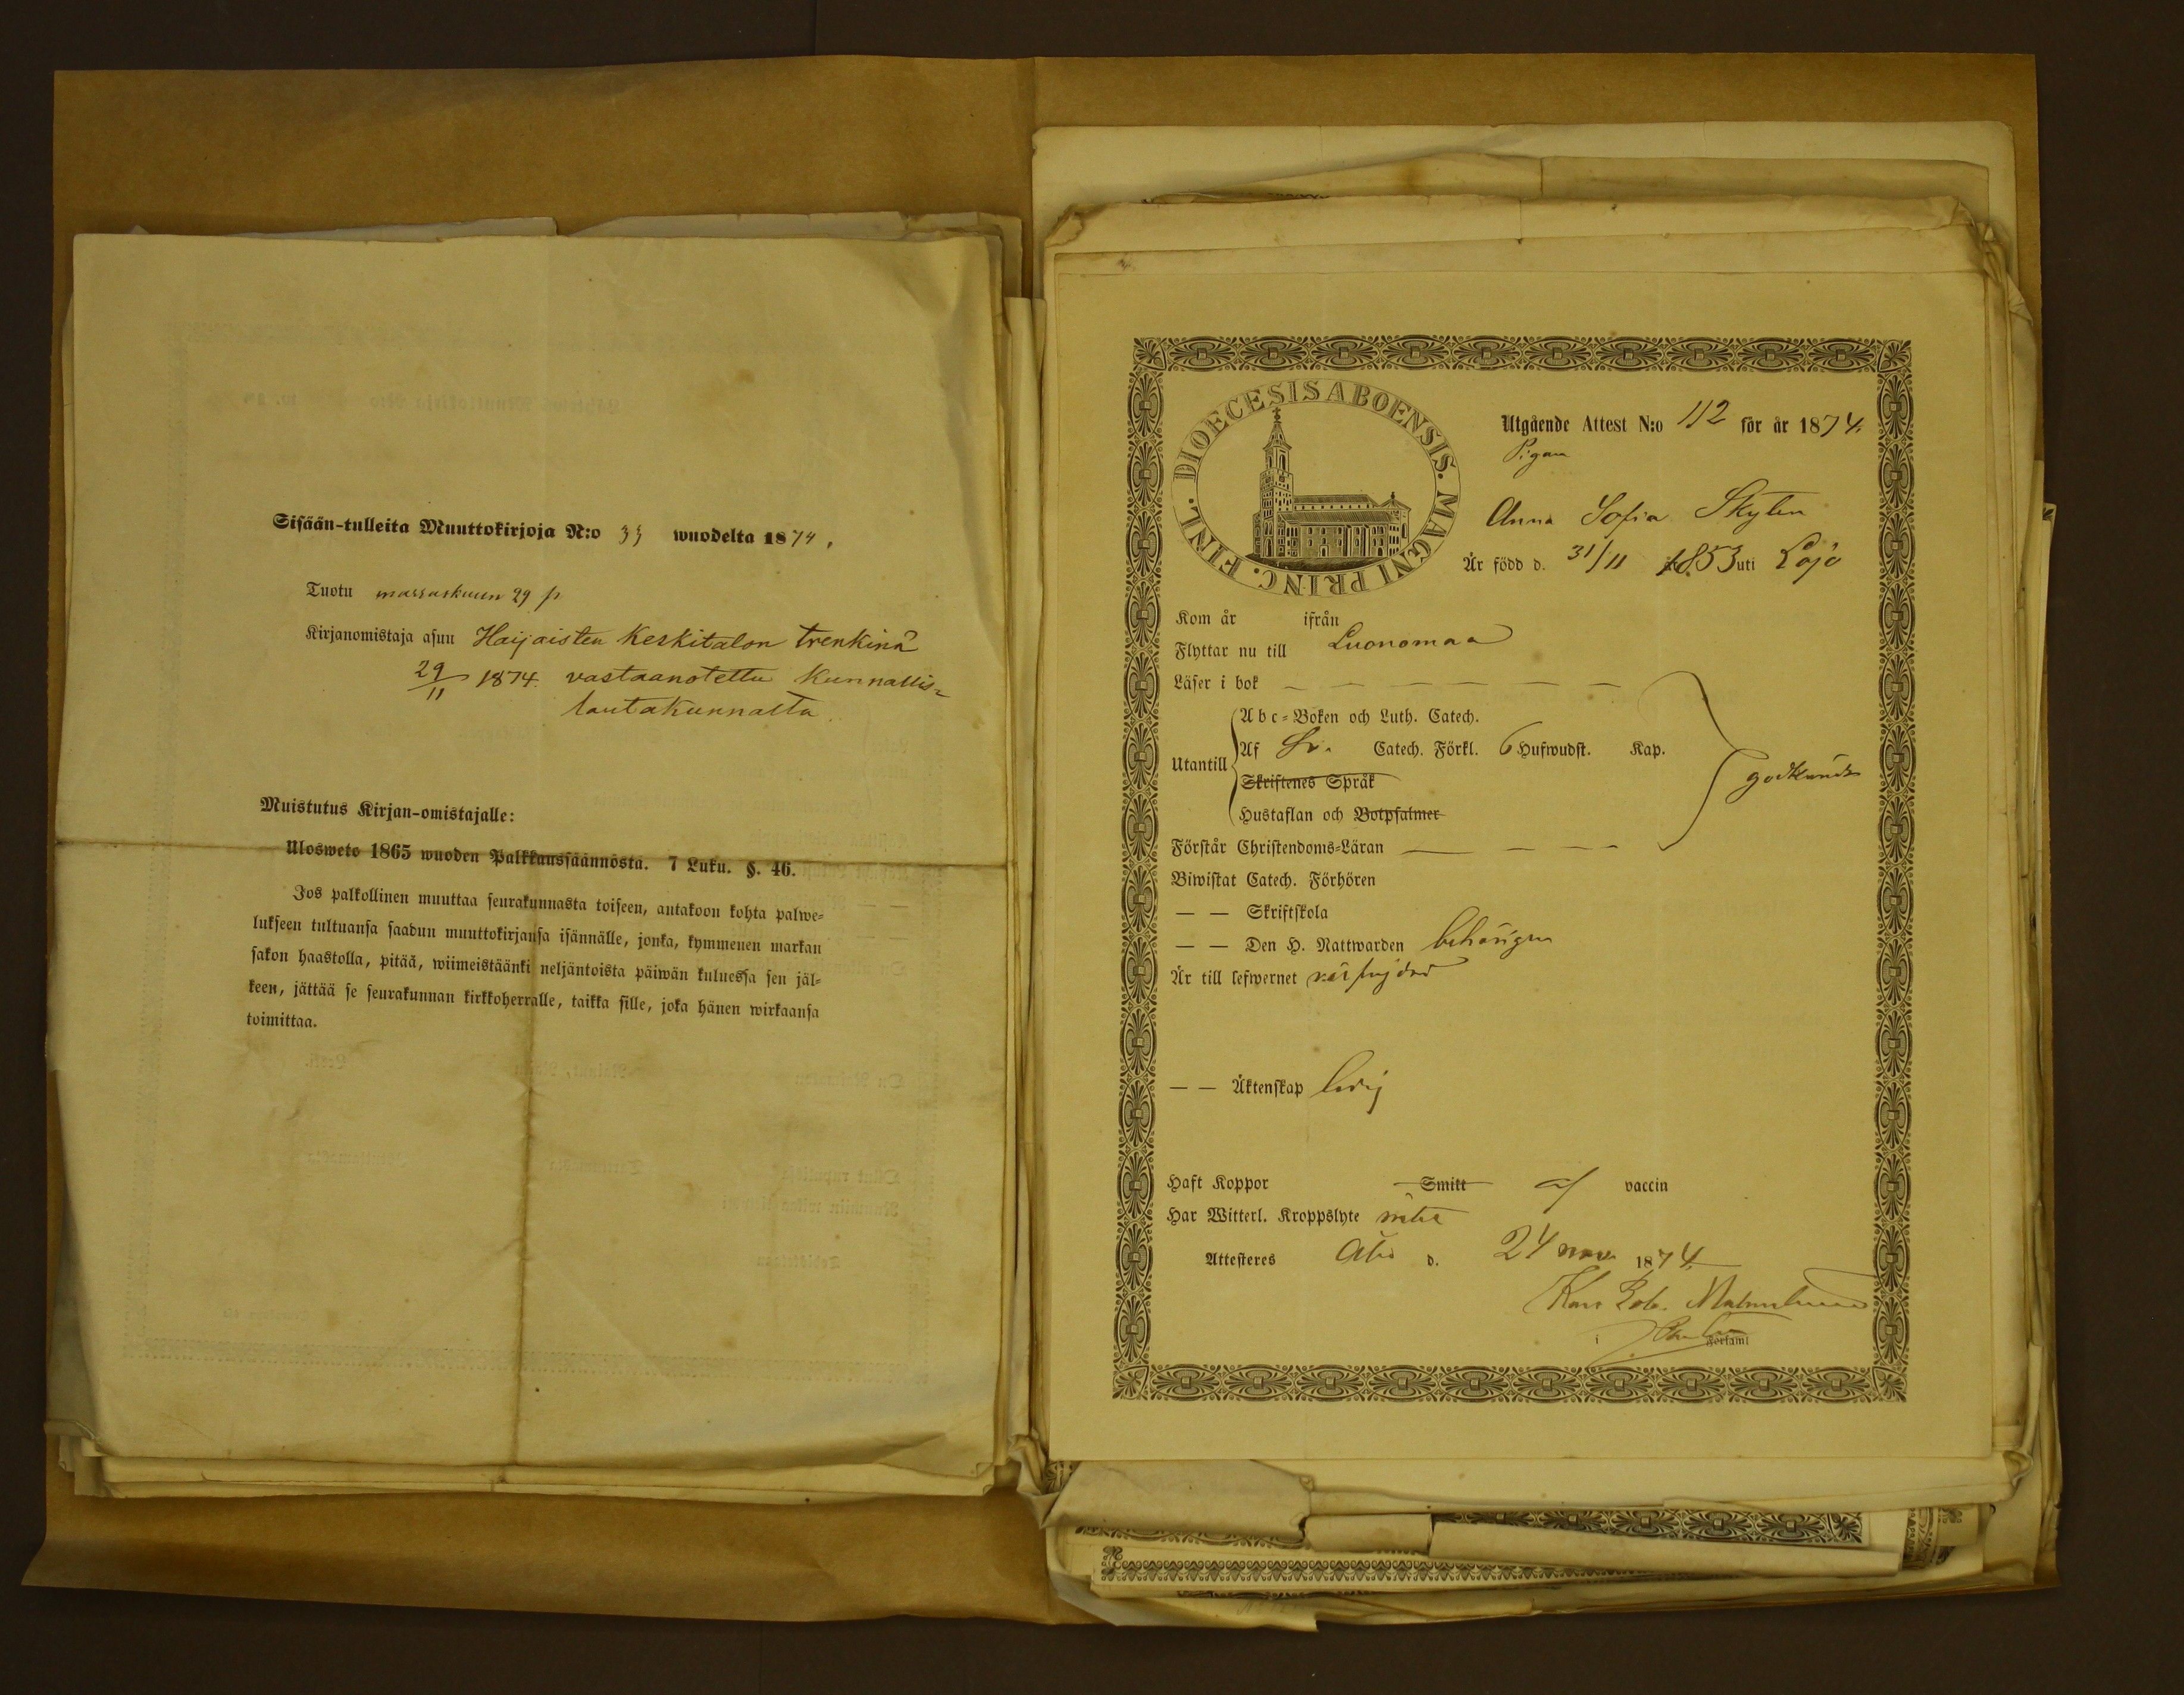 Sisään-tulleita Muuttokirjoja N:o 33 wuodelta 1874.
Tuotu marraskuun 29 p
Kirjanomistaja asuu Haijaisten Keskitalon trenkinä
29/11 1874. vastaanotettu Kunnallis-
lautakunnalta.
Muistutus Kirjan-omistajalle:
Ulosweto 1865 wuoden Palkkaussäännöstä. 7 Luku. §. 46.
Jos palkollinen muuttaa seurakunnasta toiseen, antakoon kohta palwe-
lukseen tultuansa saadun muuttokirjansa isännälle, jonka, kymmenen markan
sakon haastolla, pitää, wiimeistäänki neljäntoista päiwän kuluessa sen jäl-
keen, jättää se seurakunnan kirkkoherralle, taikka sille, joka hänen wirkaansa
toimittaa.
DIOECESIS ABOENSIS. MAGNI PRINC. FINL.
Utgående Attest N:o 112 för år 1874.
Pigan
Anna Sofia Skytén
Är född d. 31/11 1853 uti Lojo
Kom år ifrån
Flyttar nu till Luonomaa
Läser i bok — — — — — —
Utantill
Abc-Boken och Luth. Catech.
Af Sv. Catech. Förkl. 6 Hufwudst. Kap.
Skriftenes Språk
Hustaflan och Botpsalmer
godkändt
Förstår Christendoms-Läran — — — —
Biwistat Catech. Förhören
— — Skriftskola
— — Den H. Nattwarden behörigen
Är till lefwernet välfrejdad
— — Äktenskap ledig
Haft Koppor Smitt af vaccin
Har Witterl. Kroppslyte intet
Attesteres Åbo d. 24 nov. 1874.
Karl Rob. Malmström
i Församl